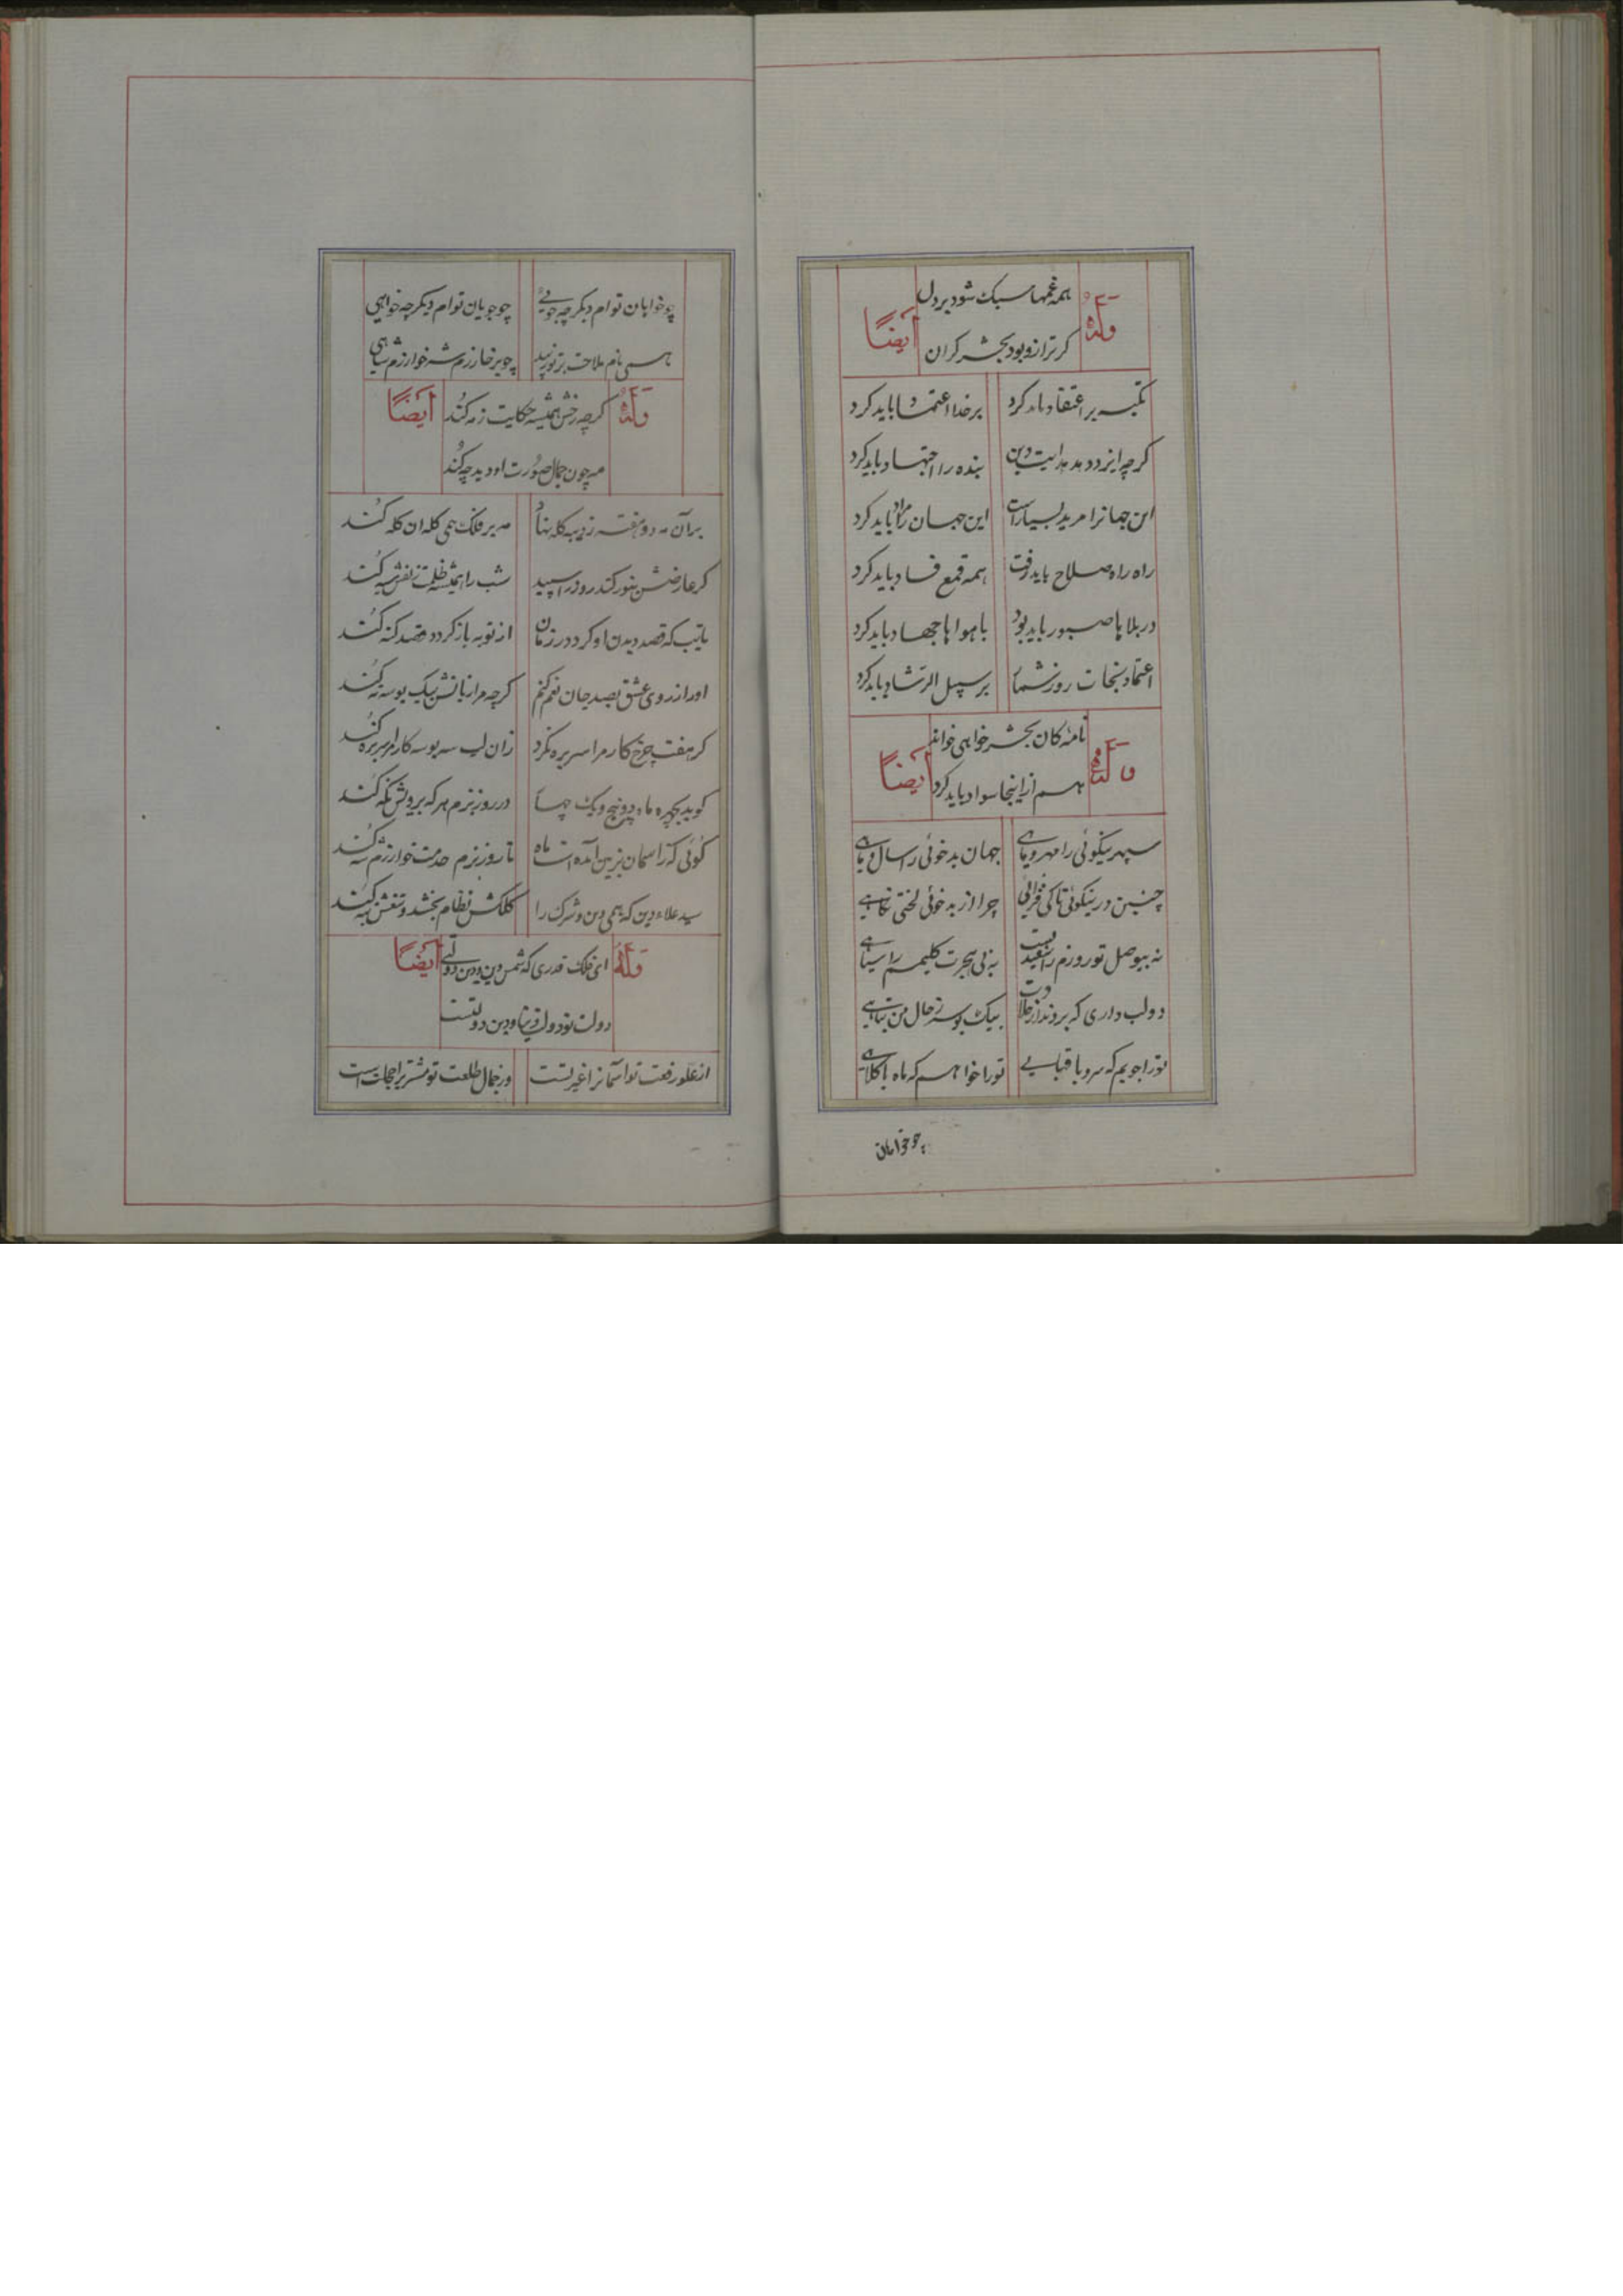 وله همه غمها سبک شود بر دل ایضاً
کر ترازو بود بحشر کران
تکیه بر اعتقاد باید کرد برخدا اعتماد باید کرد
کرچه ایزد دهد هدایت دین بنده را اجتهاد باید کرد
این جهانرا مرید بسیار است این جهان را باید کرد
راه راه صلاح باید رفت همه قمع فساد باید کرد
در بلا با صبور باید بود با هوا با جهاد باید کرد
اعتماد نجات روز شمار بر سبیل الرشاد باید کرد
وله نامه کان بحشر خواهی خواند ایضاً
هم از اینجا سواد باید کرد
سپهر نیکوئی را مهر و ماهی جهان بدخوئی را سال و ماهی
چنین در نیکوئی تا کی فزائی چرا از بدخوئی لختی نکاهی
نه بیوصل تو روزم را سعیدیست نه بی هجرت کلیمم را سیاهی
دو لب داری که بروند از حلاوت بیک بوسه ز حال من تباهی
تورا جویم که سرو با قبایی تورا خواهم که ماه با کلاهی
چو خواهان
چو خواهان توام دیکر چه جوئی چو جویان توام دیکر چه خواهی
همی نام ملاحت بر تو زیبد چو بر خوارزم شه خوارزم شاهی
وله کرچه رخش همیشه حکایت ز مه کند ایضاً
مه چون جمال صورت او دید چه کند
بر آن مه دو هفته ز شبه کله نهاد مه بر فلک همی کله ان کله کند
کر عارضش بنور کند روز را سپید شب را همیشه ظلمت زلفش سیه کند
تایب که قصد دیدن او کرد در زمان از توبه باز کردد و قصد کنه کند
اورا ز روی عشق بصد جان نعم کنم کرچه مرا زبانش بیک بوسه نه کند
کر هفت چرخ کار مرا سربره نکرد زان لب سه بوسه کار مرا سربره کند
کوید بچهره ماه دو پنج و یک چهار در روز بزم هر که برویش نکه کند
کوئی که ز آسمان بزمین آمده است ماه تا روز بزم خدمت خوارزمشه کند
سید علاء دین که همی دین و شرک را کلکش نظام بخشد و تیغش تبه کند
وله ای فلک قدری که شمس دین و دین دولتی ایضاً
دولت تو دولت دنیا و دین دولتست
از علو رفعت تو آسمانرا غیرتست وز جمال طلعت تو مشتریرا خجلت است